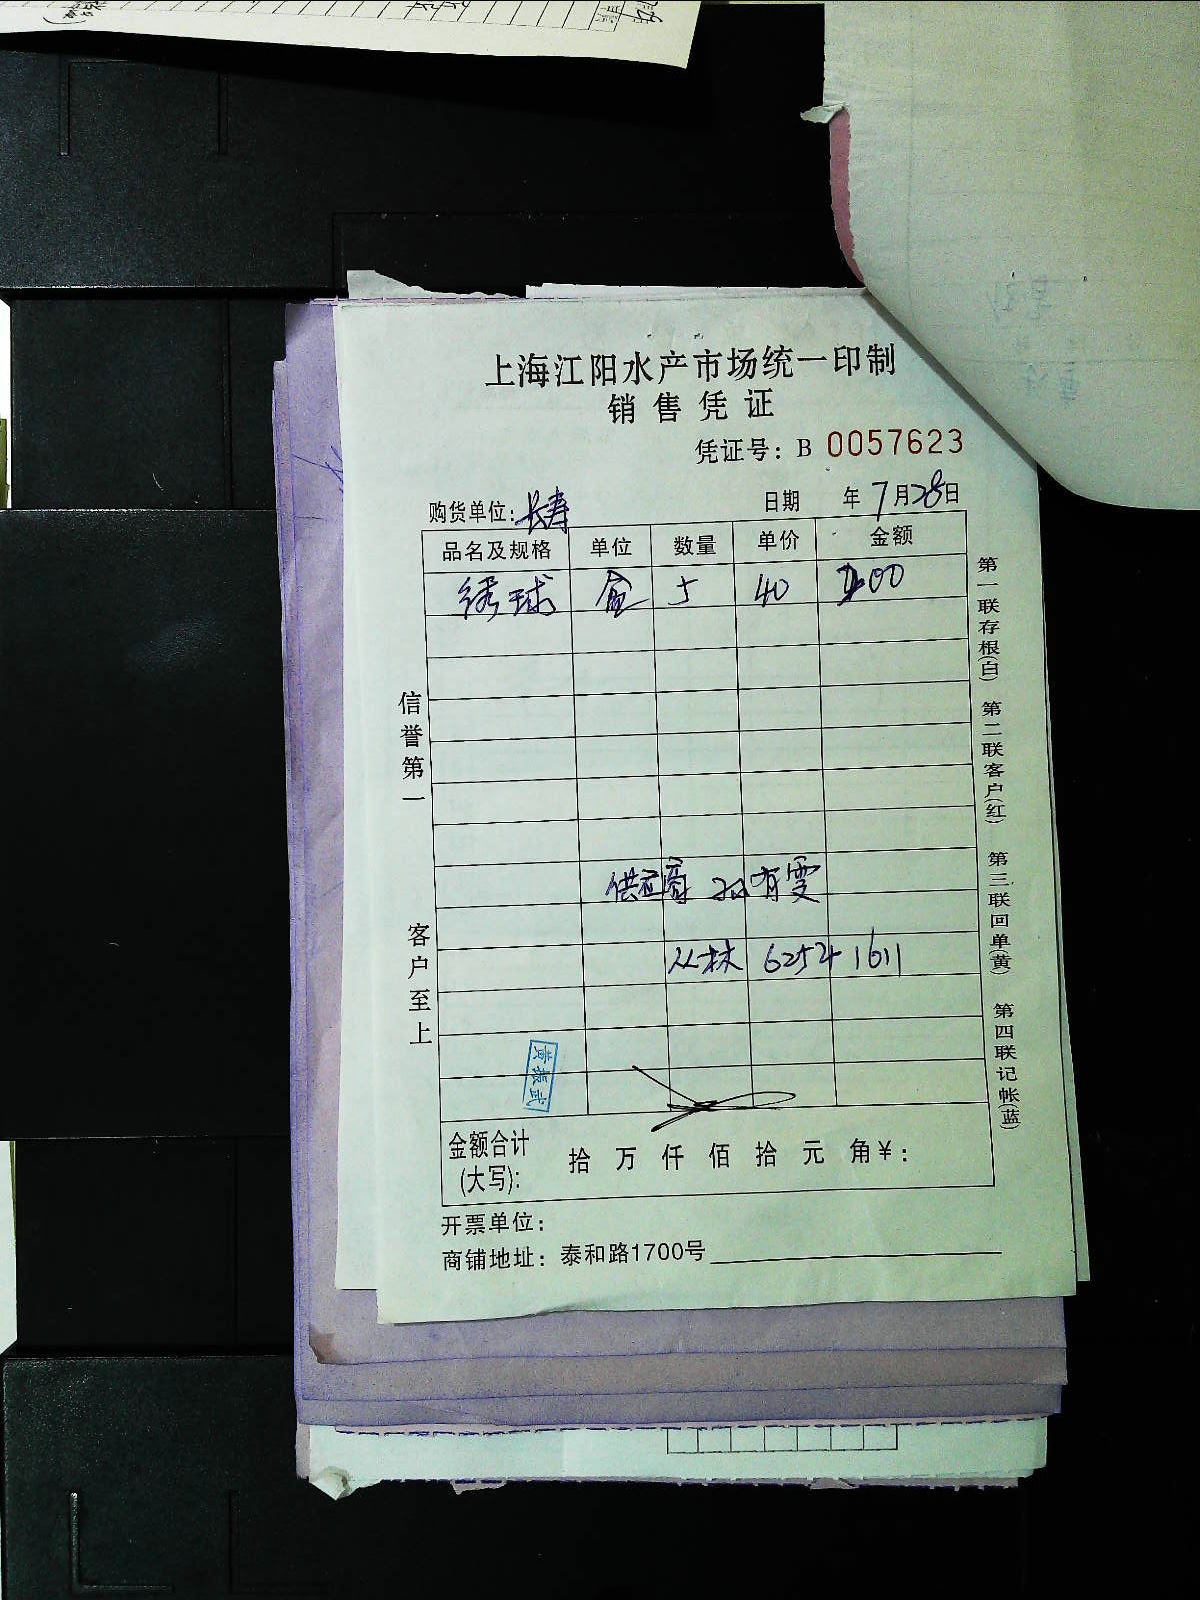 上海江阳水产市场统一印制
销售凭证
凭证号：B 0057623
购货单位：长寿 日期 年7月28日
品名及规格 单位 数量 单价 金额
绣球 盒 5 40 200
供应商 有雯
丛林 62541611
黄振武
金额合计(大写)： 拾 万 仟 佰 拾 元 角¥：
开票单位：
商铺地址：泰和路1700号
信誉第一 客户至上
第一联存根(白) 第二联客户(红) 第三联回单(黄) 第四联记帐(蓝)